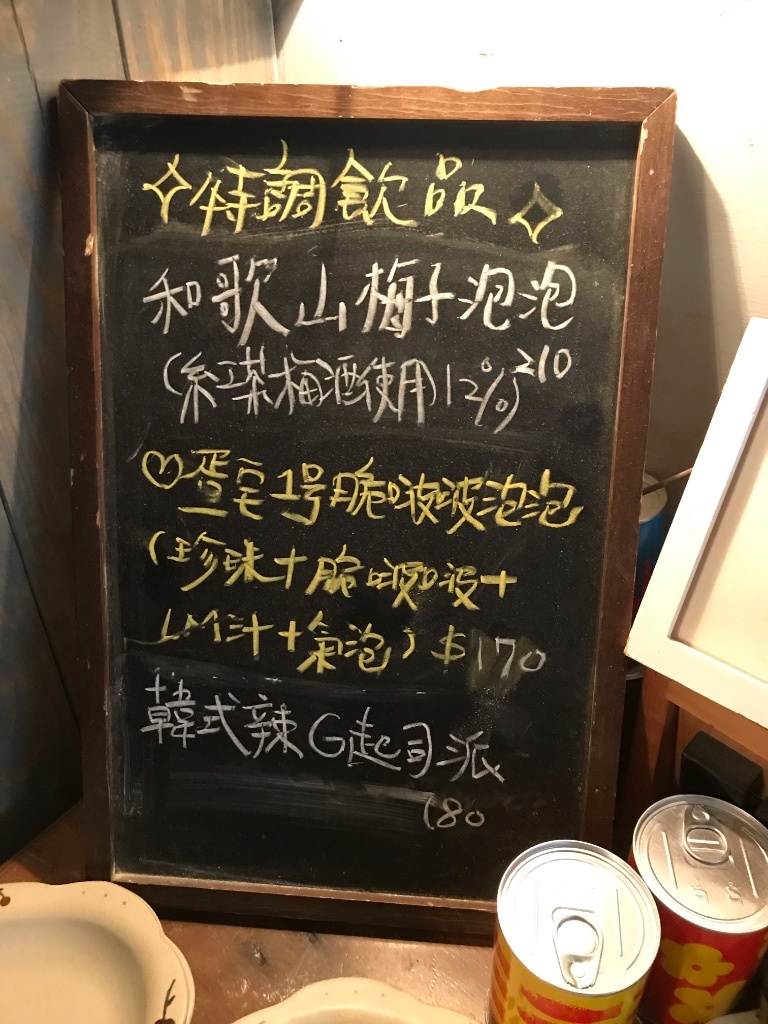 特調飲品
和歌山梅子泡泡
(紅茶梅酒使用12%) 210
♡蛋宅1号脆啵啵泡泡
(珍珠+脆啵啵+
LM汁+氣泡) $170
韓式辣G起司派
180